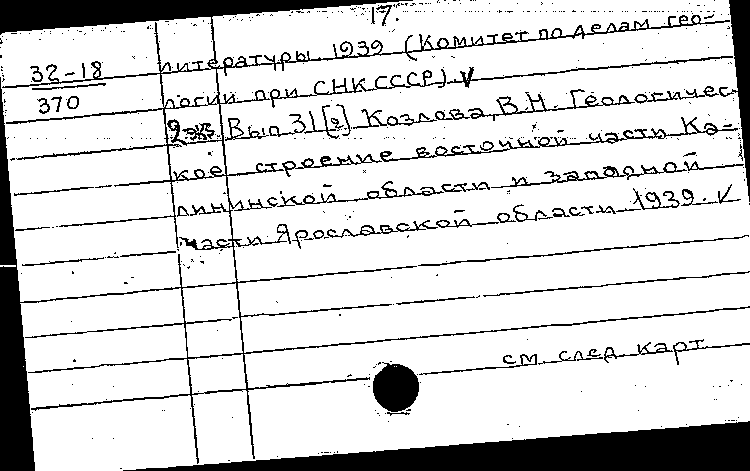 17.
32-18
370
литературы 1939 (Комитет по делам гео-
логии при СНК СССР). V
2 экз. Вып 31[2] Козлова, В.Н. Геологичес-
кое строение восточной части Ка-
лининской области и западной
части Ярославской области 1939. V
см. след. карт